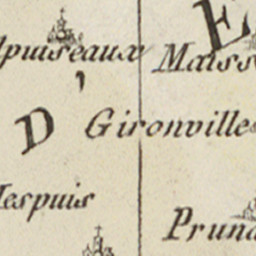 puiseaux Maiss
E
D'
Gironville
espuis
Prun